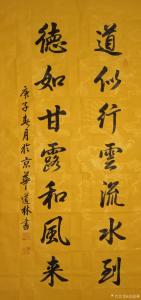 道似行雲流水到
德如甘露和風来
庚子春月於京華道林書